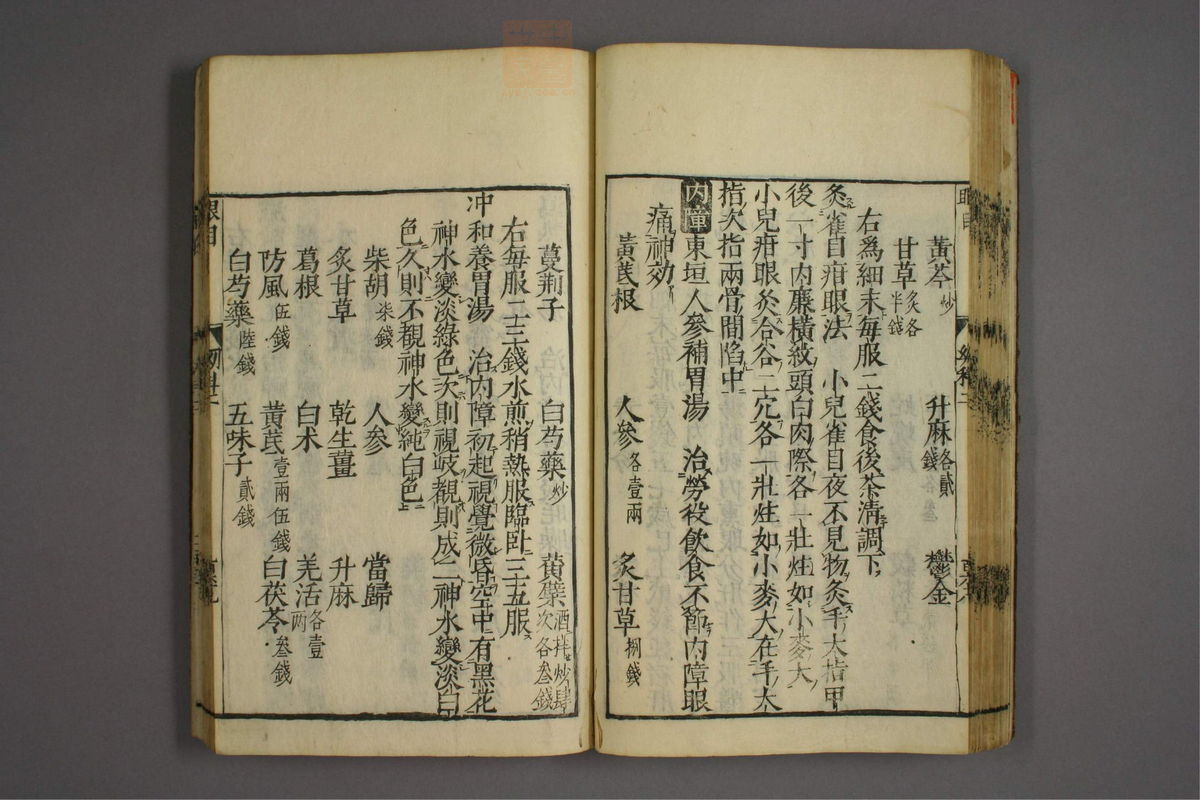 黃芩炒　升麻各貳錢　鬱金
甘草炙各半錢
右爲細末每服二錢食後茶清調下
灸雀目疳眼法　小兒雀目夜不見物灸手大指甲
後一寸内廉橫紋頭白肉際各一壯炷如小麥大
小兒疳眼灸合谷二穴各一壯炷如小麥大在手大
指次指兩骨間陷中
内障東垣人參補胃湯　治勞役飲食不節内障眼
痛神効
黃芪根　人參各壹兩　炙甘草捌錢
蔓荆子　白芍藥炒　黄蘗酒拌炒肆次各叁錢
右每服二三錢水煎稍熱服臨臥三五服
冲和養胃湯　治内障初起視覺微昏空中有黑花
神水變淡綠色次則視岐覩則成二神水變淡白
色久則不覩神水變純白色
柴胡柒錢　人參　當歸
炙甘草　乾生薑　升麻
葛根　白朮　羌活各壹兩
防風伍錢　黃芪壹兩伍錢　白茯苓叁錢
白芍藥陸錢　五味子貳錢
眼目　幼科二